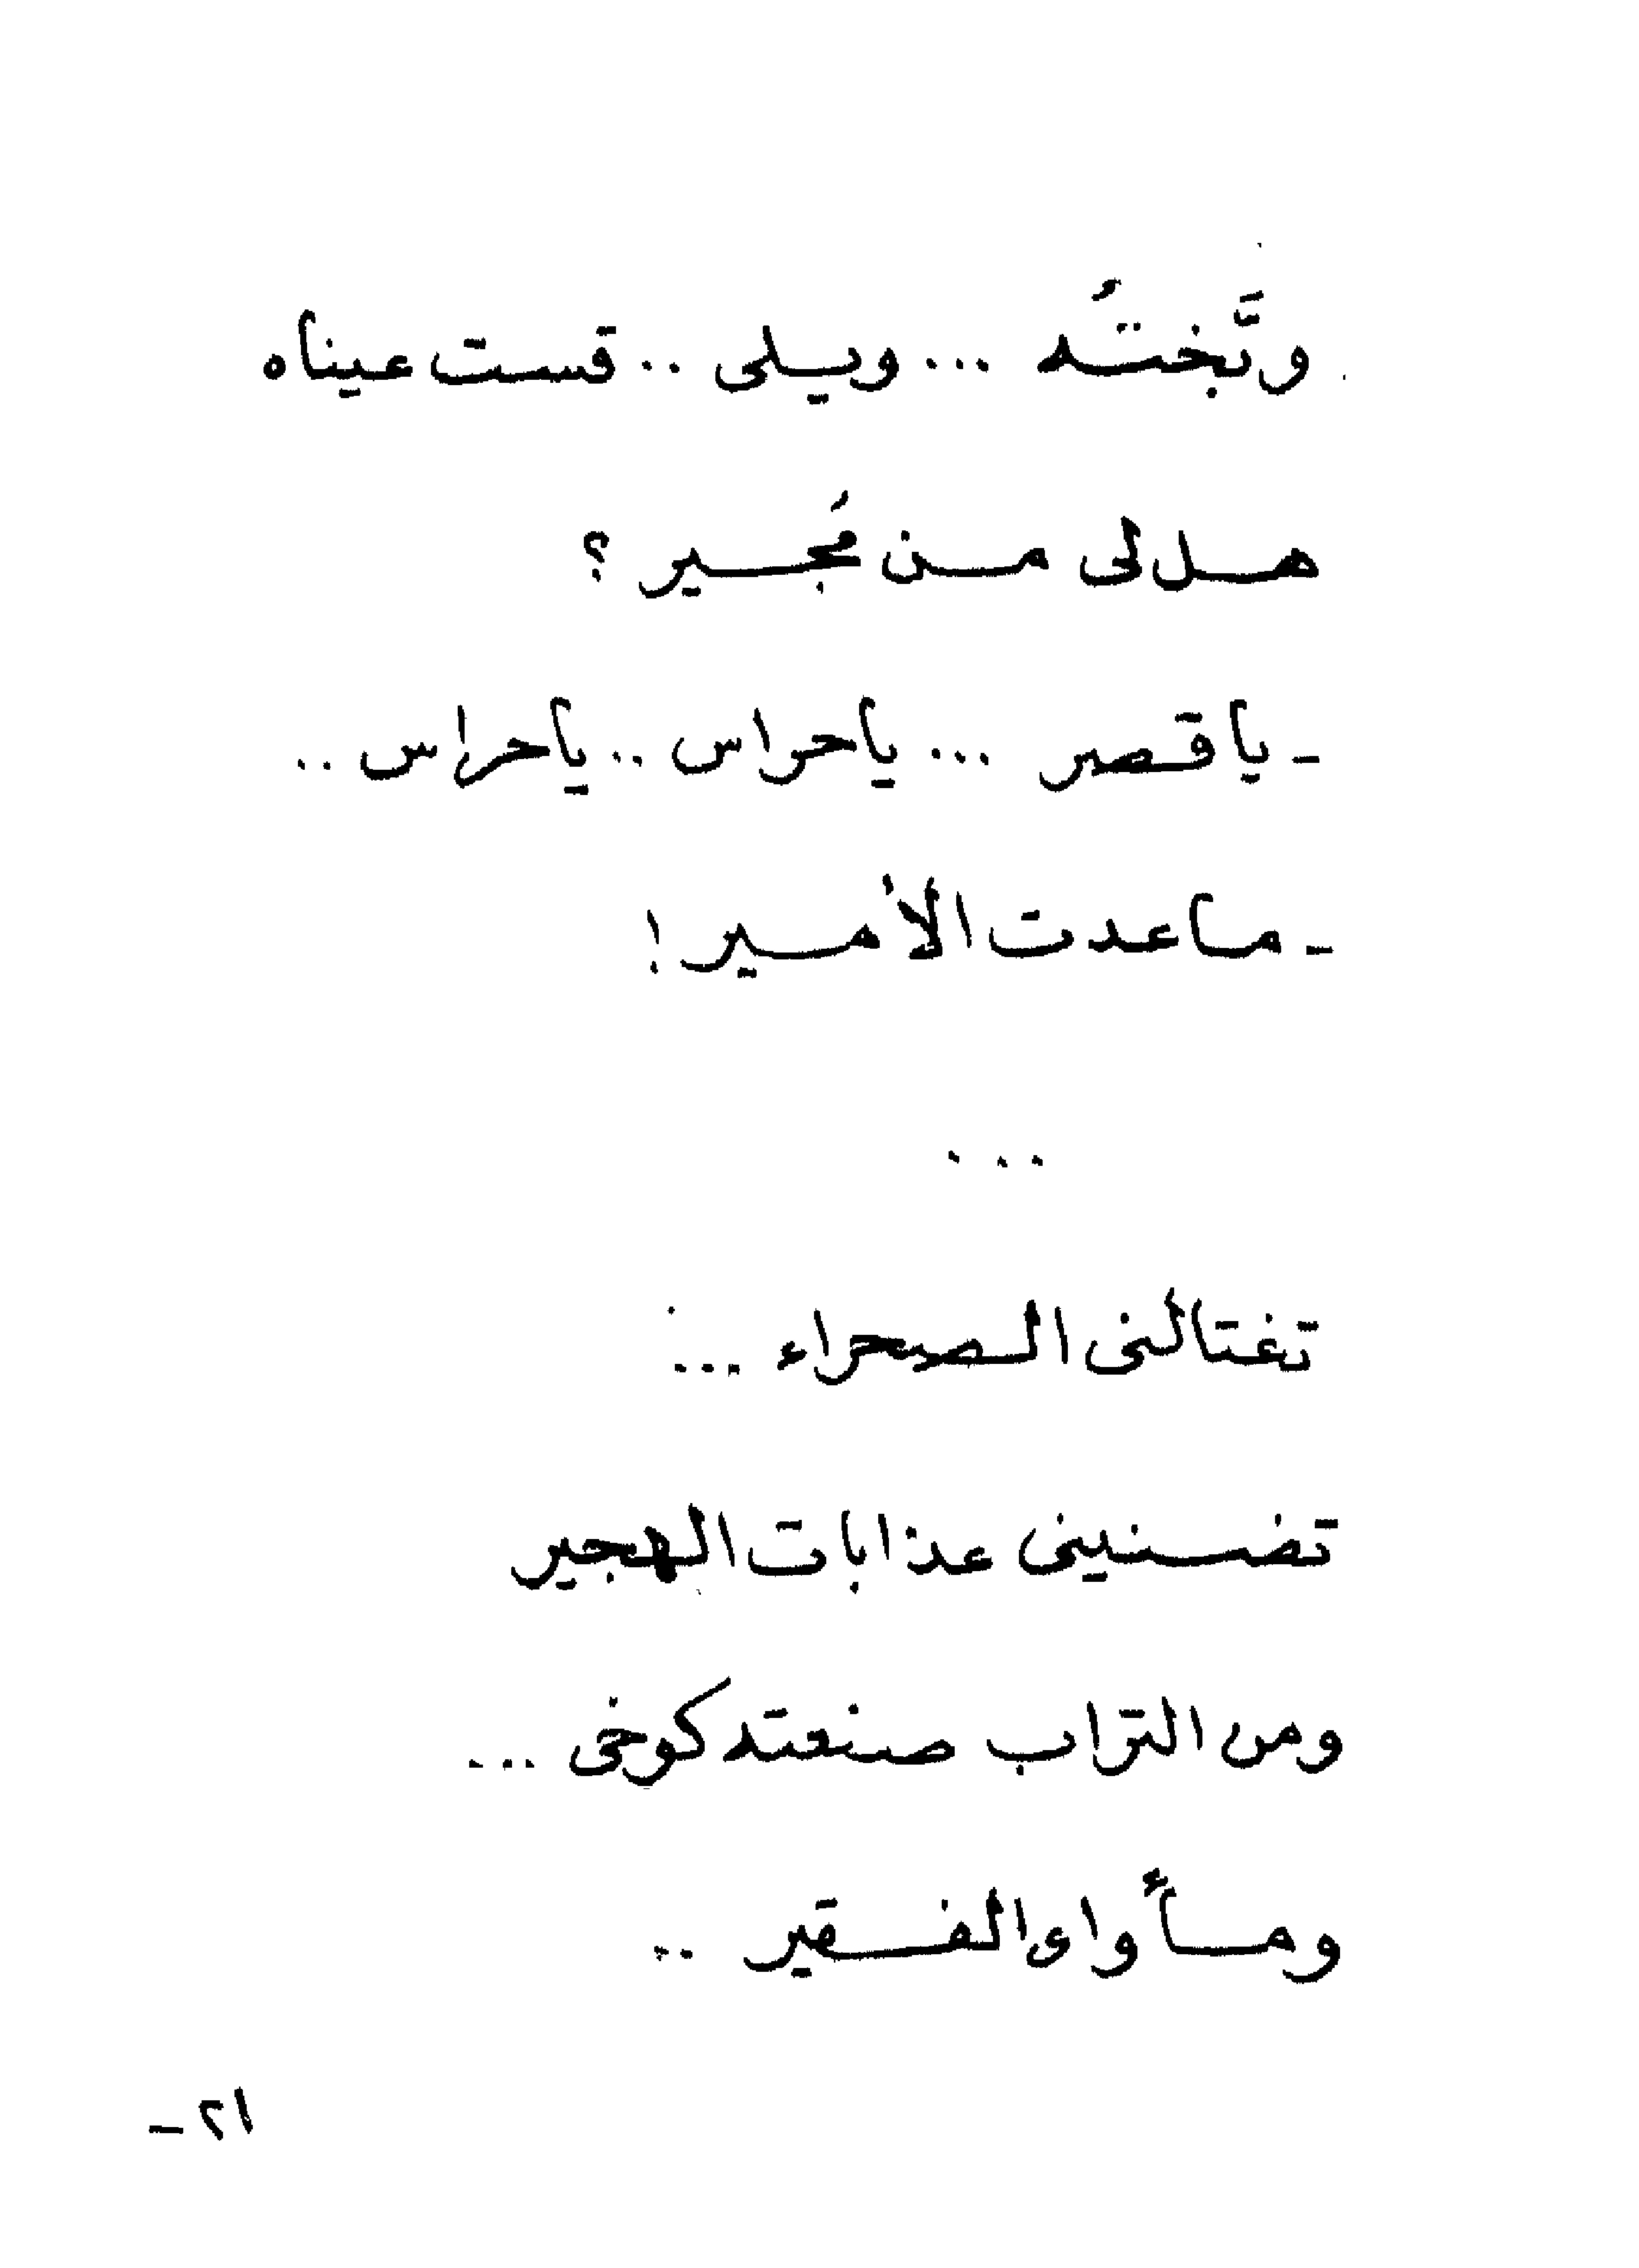 وبَّختُه ... ويلى .. قست عيناه
هل لى من مُجير ؟
- يا قصر ... يا حراس .. يا حراس ..
- ما عدت الأمير !
...
تغتالنى الصحراء ...
تضنينى عذابات الهجير
ومن التراب صنعته كوخى ...
ومأواى الفقير ..
٢١ -